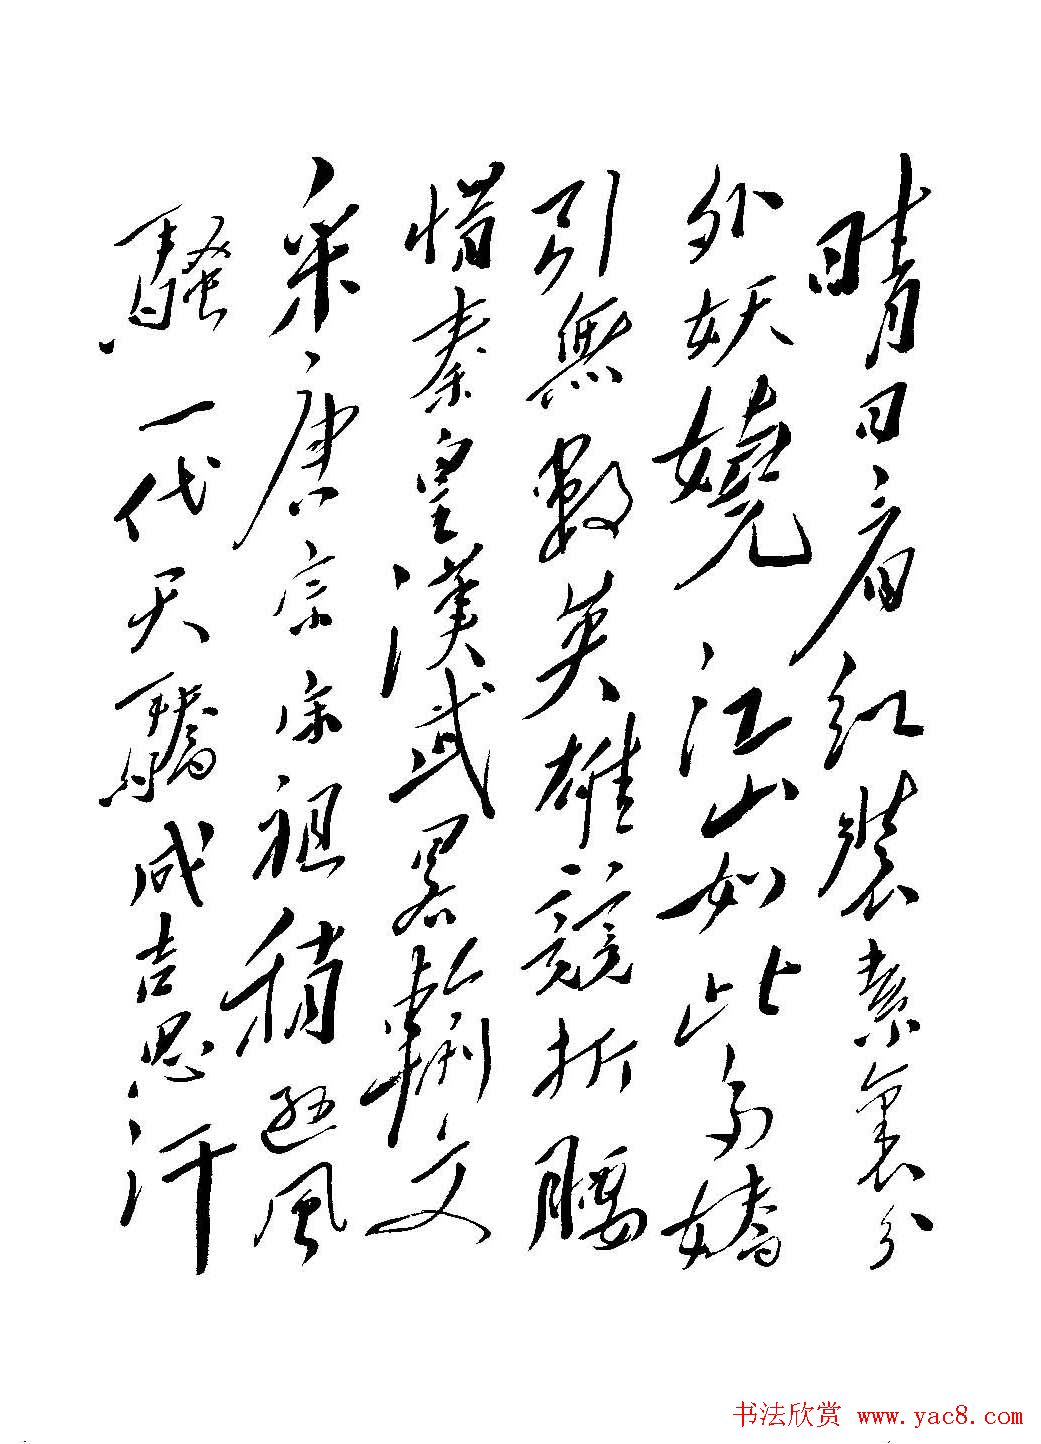 晴日看红装素裹分
外妖嬈江山如此多嬌
引無數英雄競折腰
惜秦皇漢武畧輸文
采唐宗宋祖稍遜風
騷一代天驕成吉思汗
书法欣赏 www.yac8.com